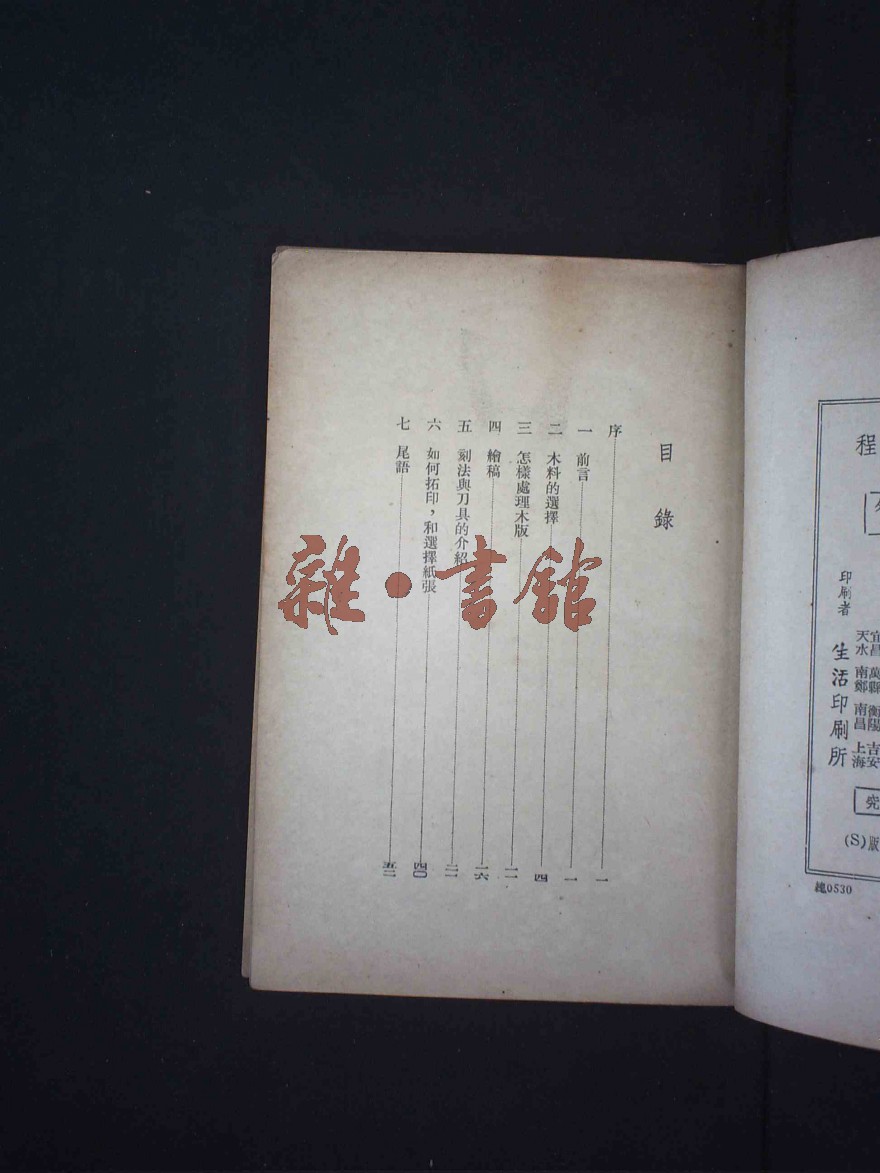 程
印刷者 生活印刷所
宜昌 萬縣 衡陽 吉安
天水 南鄭 南昌 上海
究
(S)版
總0530
目錄
序 一
一 前言 一
二 木料的選擇 四
三 怎樣處理木版 一一
四 繪稿 一六
五 刻法與刀具的介紹 二一
六 如何拓印，和選擇紙張 四〇
七 尾語 五二
雜·書館